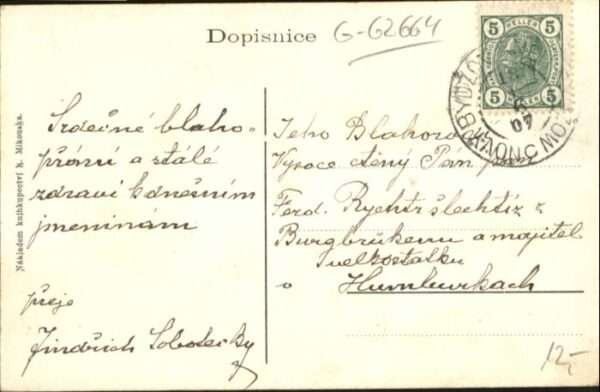 Dopisnice
G-62664
5 HELLER 5
5 HELLER 5
Nákladem knihkupectví K. Mikouska.
Srdečné blaho-
přání a stálé
zdraví k dnešním
jmeninám
přeje
Jindřich Sobotecky
Jeho Blahorodí
Vysoce ctěný Pán pan
Ferd. Rychtr šlechtiz z
Burgbrükenu a majitel
velkostatku
v Humburkach
12,-